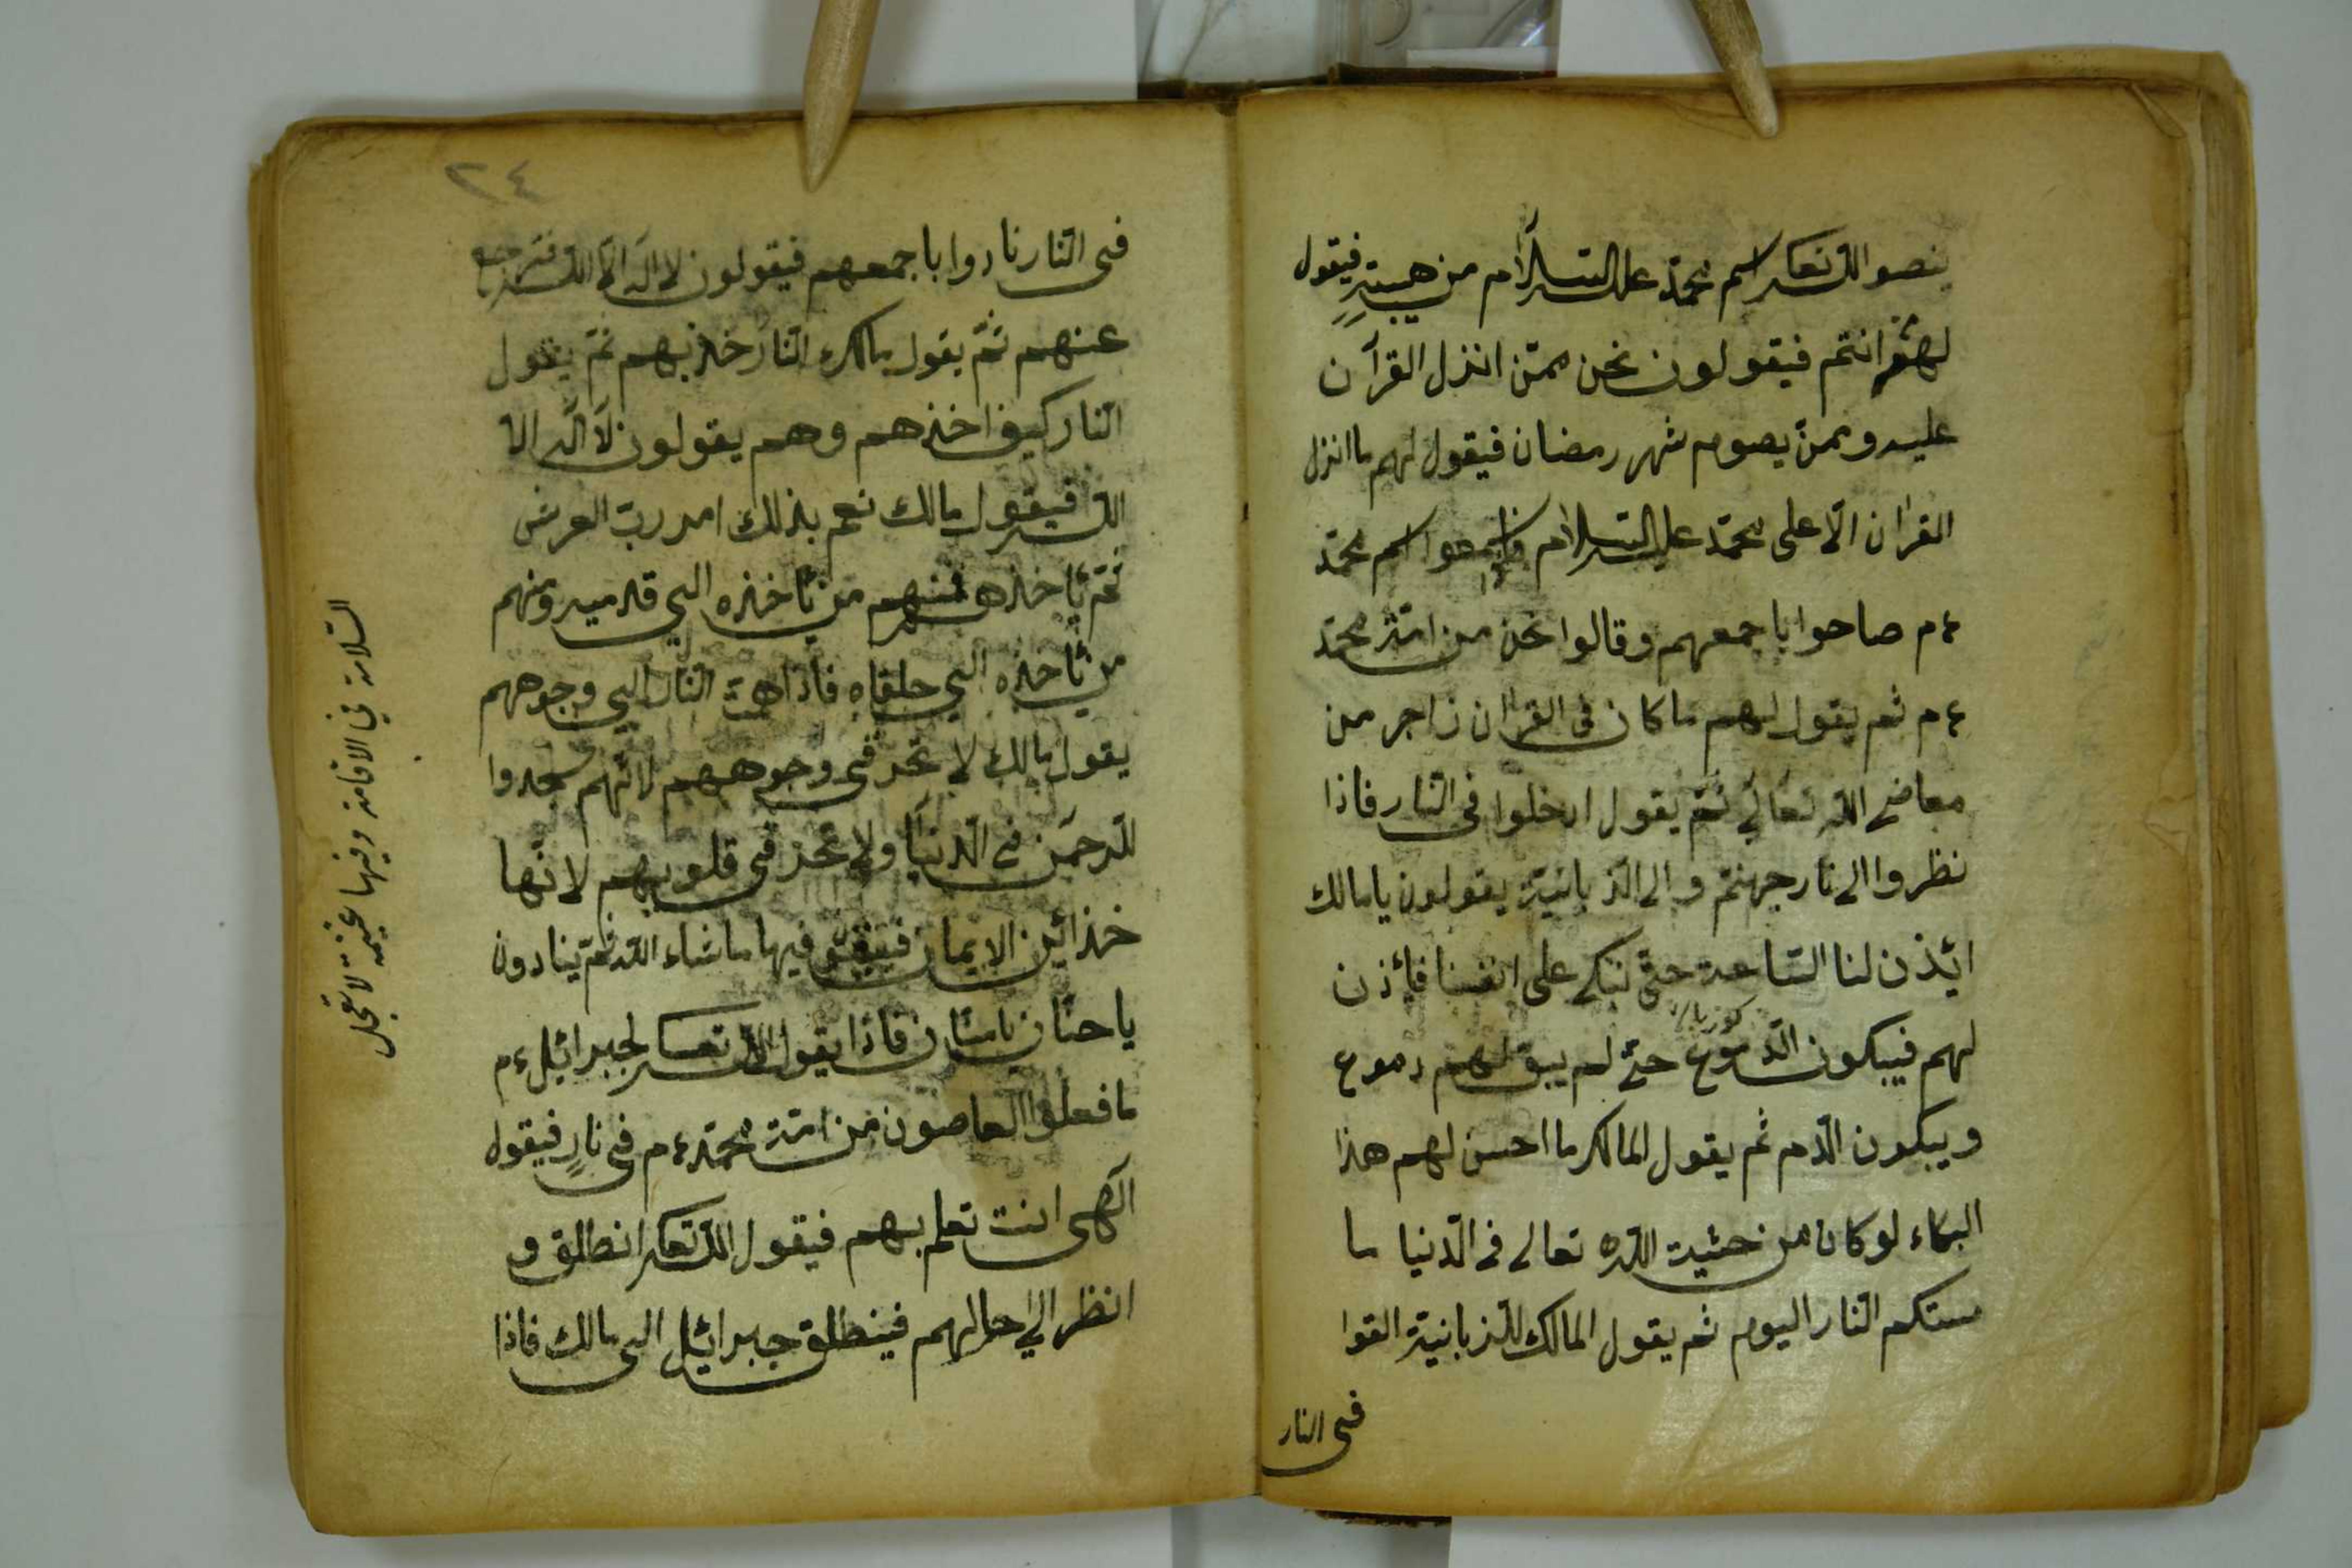 ينصو الله تعالى اسم محمد عليه السلام من هيبته فيقول
لهم انتم فيقولون نحن ممن انزل القرآن
عليه وممن يصوم شهر رمضان فيقول لهم ما انزل
القران الا على محمد عليه السلام فاسمعوا اسم محمد
ءم صاحوا باجمعهم وقالوا نحن من امة محمد
ءم ثم يقول لهم ما كان فى القران زاجر من
معاصى الله تعالى ثم يقول ادخلوا فى النار فاذا
نظروا الى نار جهنم والى الزبانية يقولون يا مالك
ائذن لنا الساعة حتى نبكى على انفسنا فأذن
لهم فيبكون الدموع حتى لم يبق لهم دموع
ويبكون الدم ثم يقول المالك ما احسن لهم هذا
البكاء لو كان من خشية الله تعالى فى الدنيا ما
مستكم النار اليوم ثم يقول المالك للزبانية القوا
فى النار
٢٤
فى النار نادوا باجمعهم فيقولون لا اله الا الله فترجع
عنهم ثم يقول مالك النار خذ بهم ثم يقول
النار كيف اخذهم وهم يقولون لا اله الا
الله فيقول مالك نعم بذلك امر رب العرش
ثم تاخذهم فمنهم من تاخذه الى قدميه ومنهم
من تاخذه الى حلقاه فاذا همت النار الى وجوههم
يقول مالك لا تحرقى وجوههم لانهم سجدوا
للرحمن فى الدنيا ولا تحرقى قلوبهم لانها
خزائن الايمان فيبقوا فيها ما شاء الله ثم ينادون
يا حنان يا منان فاذا يقول الله تعالى لجبرائيل ءم
ما فعلوا العاصون من امة محمد ءم فى نار فيقول
الهى انت تعلم بهم فيقول الله تعالى انطلق و
انظر الى حالهم فينطلق جبرائيل الى مالك فاذا
السلامة فى الاقامة وفيها غنيمة لا تعجل